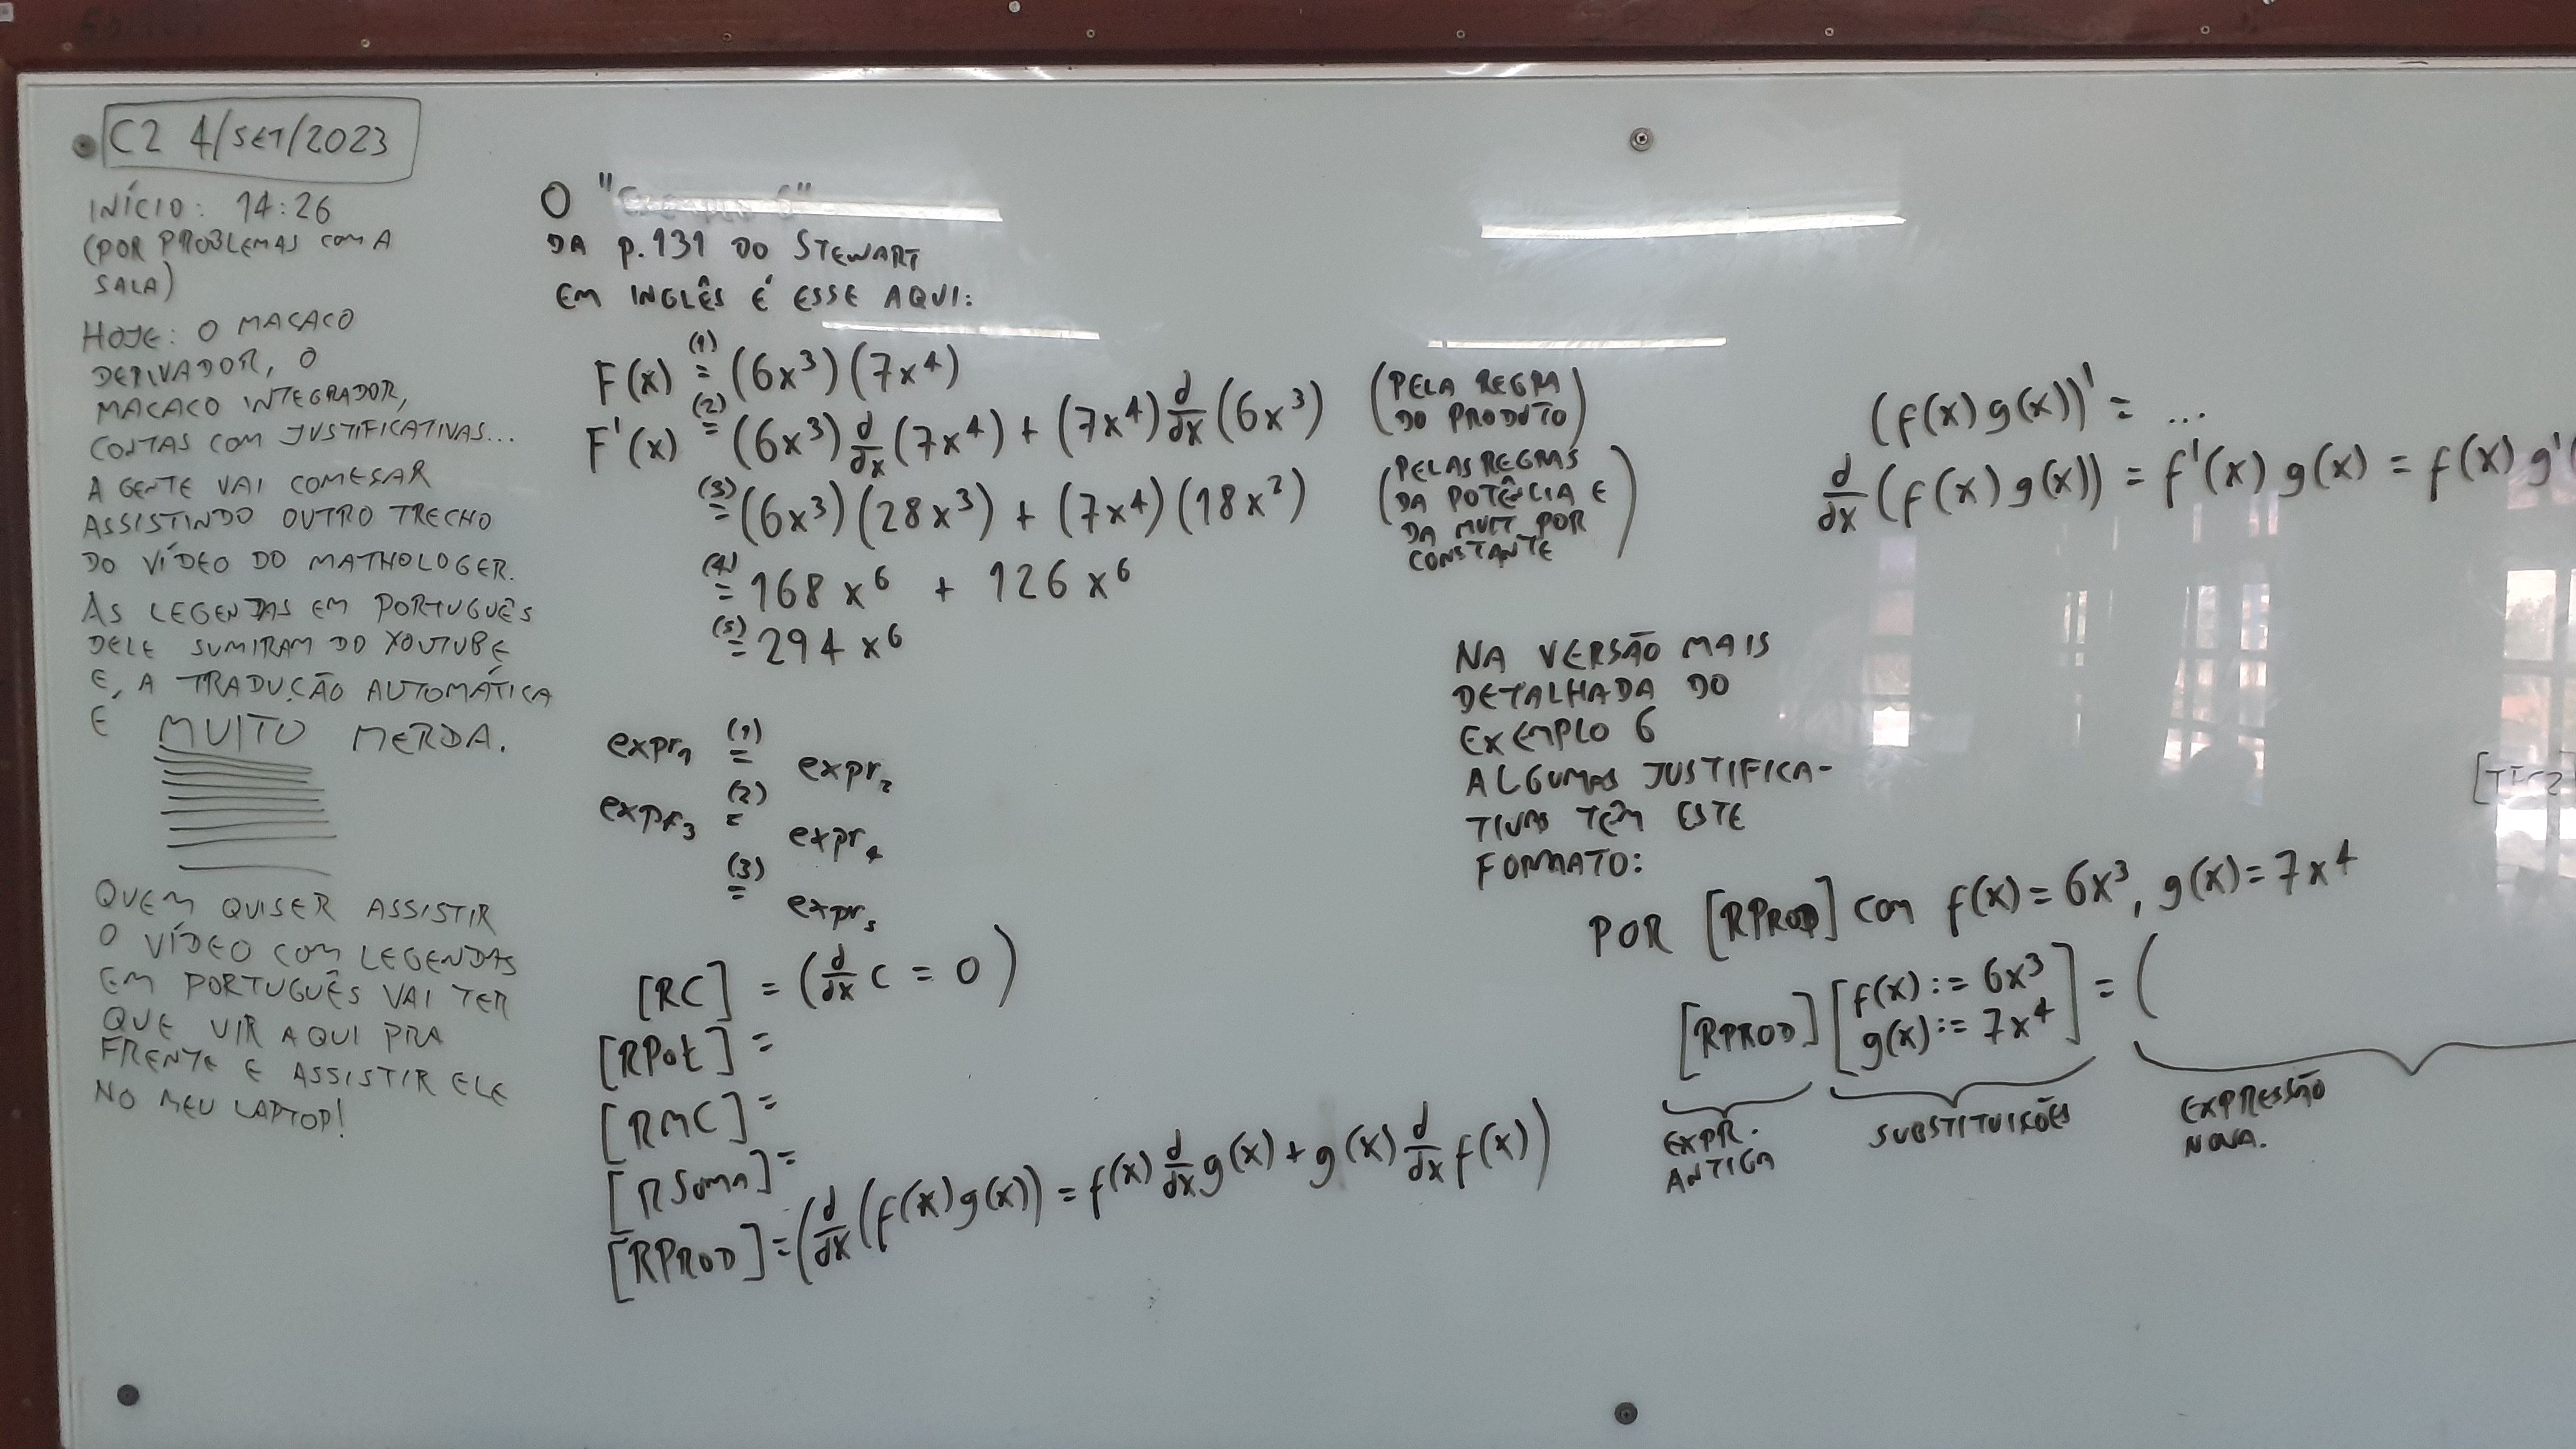 C2 4/SET/2023
INÍCIO: 14:26
(POR PROBLEMAS COM A
SALA)
HOJE: O MACACO
DERIVADOR, O
MACACO INTEGRADOR,
CONTAS COM JUSTIFICATIVAS...
A GENTE VAI COMEÇAR
ASSISTINDO OUTRO TRECHO
DO VÍDEO DO MATHOLOGER.
AS LEGENDAS EM PORTUGUÊS
DELE SUMIRAM DO YOUTUBE
E, A TRADUÇÃO AUTOMÁTICA
É MUITO MERDA.
QUEM QUISER ASSISTIR
O VÍDEO COM LEGENDAS
EM PORTUGUÊS VAI TER
QUE VIR AQUI PRA
FRENTE E ASSISTIR ELE
NO MEU LAPTOP!
O "Exemplo 6"
DA p.131 DO STEWART
EM INGLÊS É ESSE AQUI:
F(x) (1)= (6x³)(7x⁴)
F'(x) (2)= (6x³) d/dx (7x⁴) + (7x⁴) d/dx (6x³) (PELA REGRA
DO PRODUTO)
(3)= (6x³)(28x³) + (7x⁴)(18x²) (PELAS REGRAS
DA POTÊNCIA E
DA MULT POR
CONSTANTE)
(4)= 168x⁶ + 126x⁶
(5)= 294x⁶
expr₁ (1)= expr₂
expr₃ (2)= expr₄
(3)= expr₅
[RC] = (d/dx c = 0)
[RPot] =
[RMC] =
[RSoma] =
[RPROD] = (d/dx (f(x)g(x)) = f(x) d/dx g(x) + g(x) d/dx f(x))
(f(x)g(x))' = ...
d/dx (f(x)g(x)) = f'(x)g(x) = f(x)g'(
NA VERSÃO MAIS
DETALHADA DO
EXEMPLO 6
ALGUMAS JUSTIFICA-
TIVAS TÊM ESTE
FORMATO:
POR [RPROD] COM f(x) = 6x³, g(x) = 7x⁴
[RPROD] [f(x) := 6x³
g(x) := 7x⁴] = (
EXPR.
ANTIGA
SUBSTITUIÇÕES
EXPRESSÃO
NOVA.